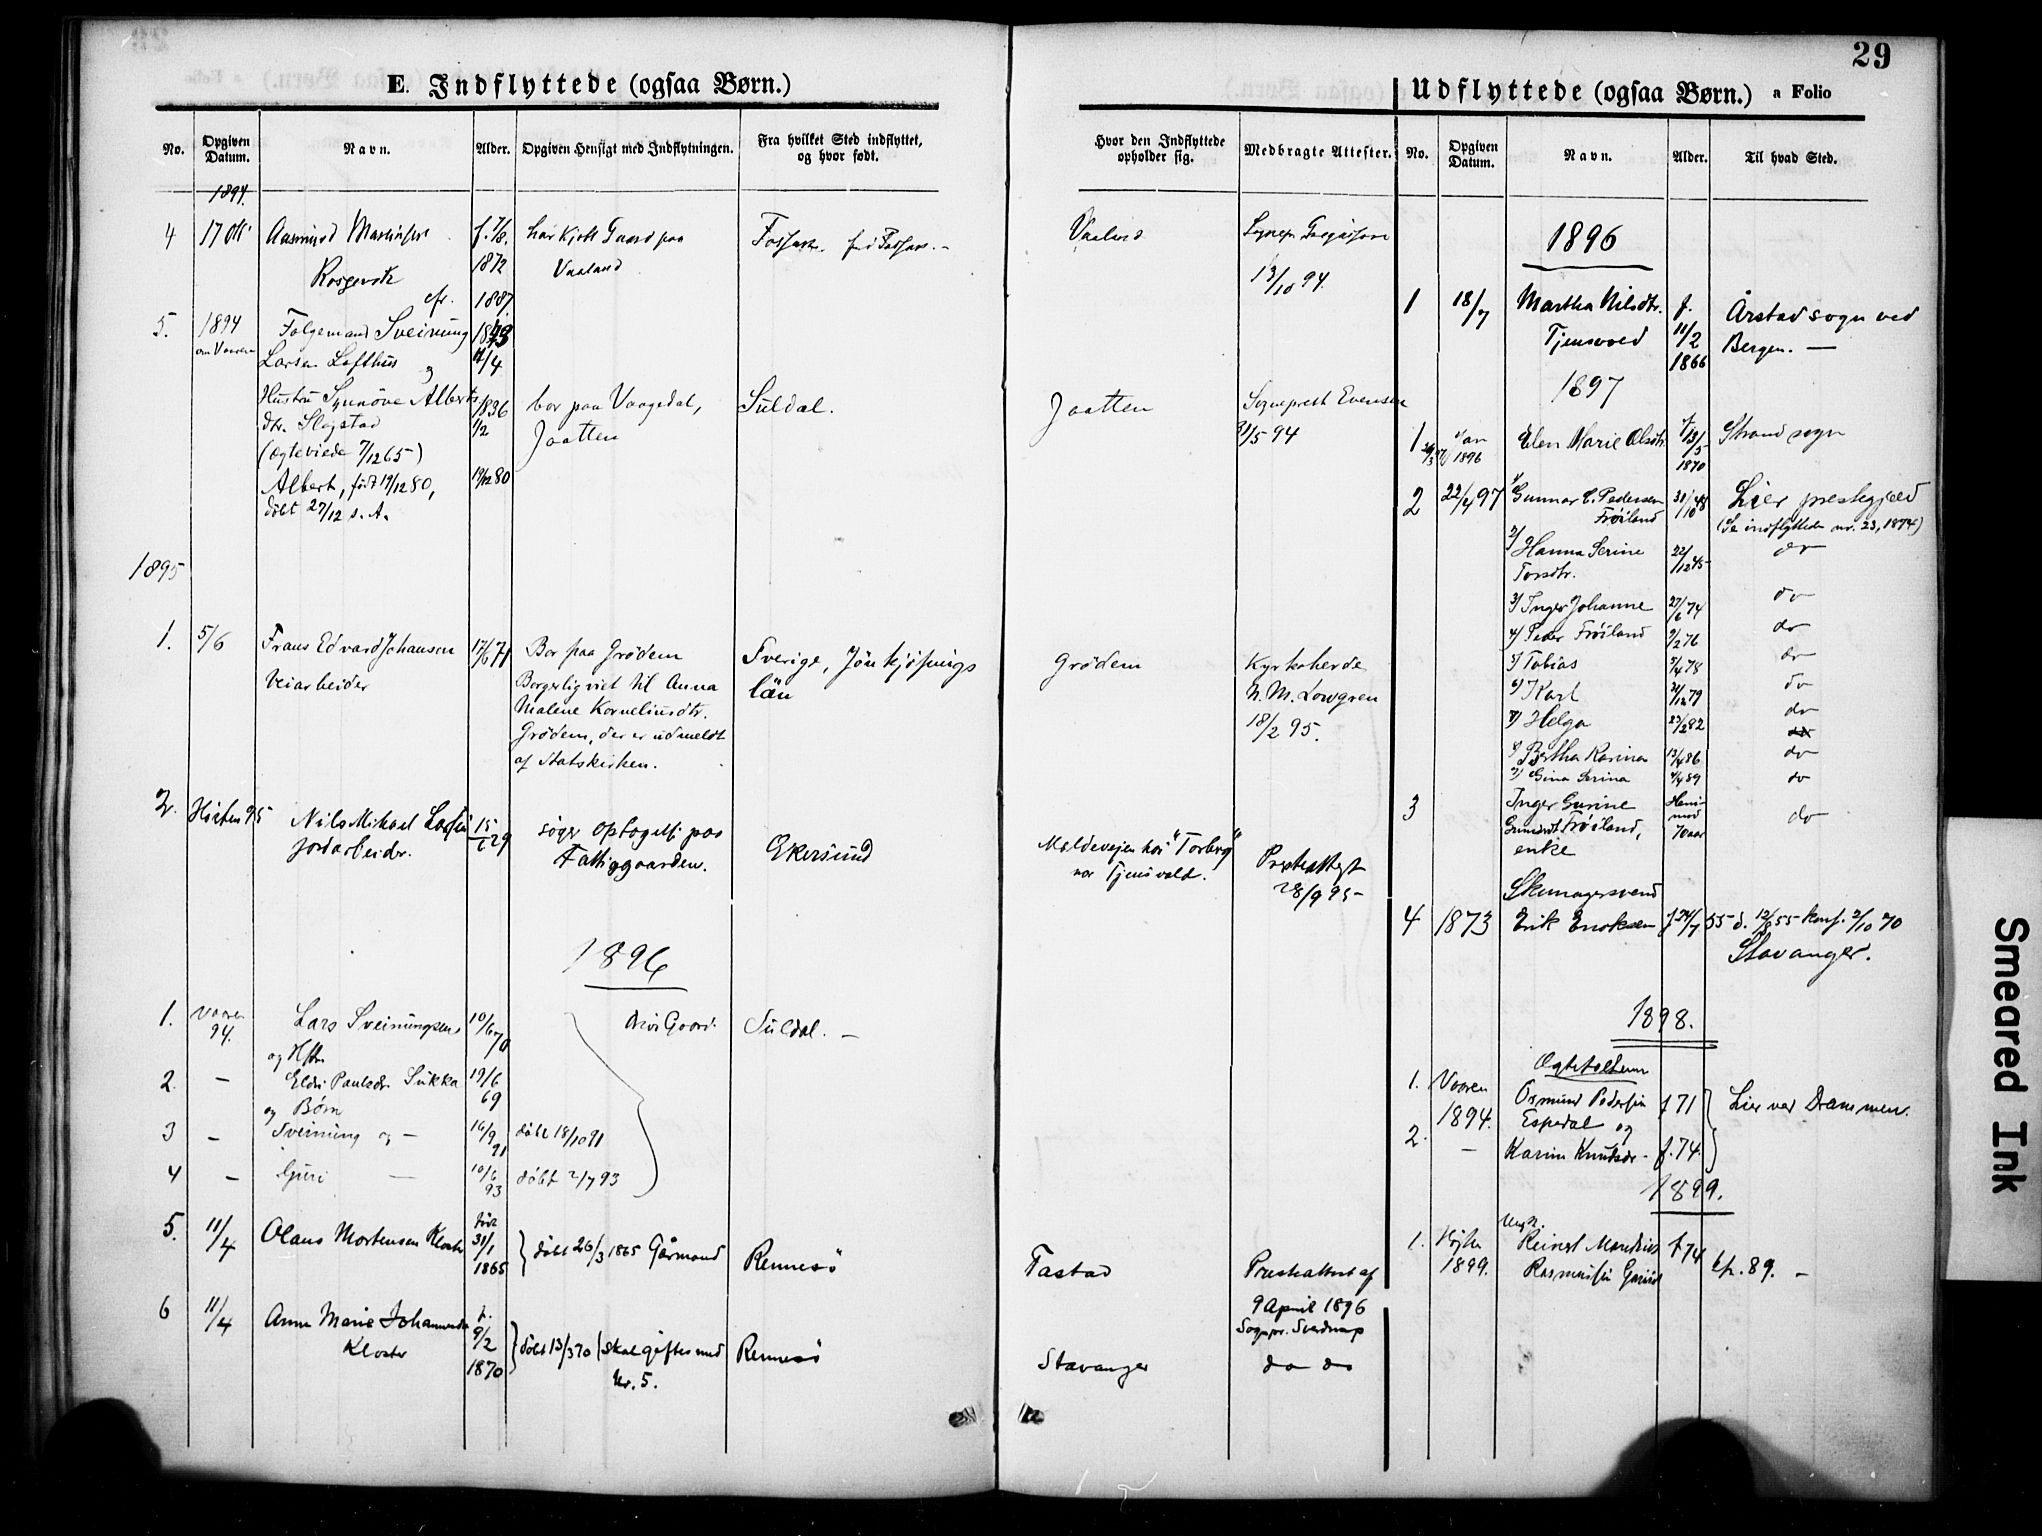 29
E. Indflyttede (ogsaa Børn.)
No.
Opgiven Datum.
Navn.
Alder.
Opgiven Hensigt med Indflytningen.
Fra hvilket Sted indflyttet, og hvor født.
Hvor den Indflyttede opholder sig.
Medbragte Attester.
1894.
4 17 Okt Aasmund f. 7/8. har kjøbt Gaard paa
1872 Vaaland
Vaaland
13/10 94.
cfr. 1887
5. 1894 Følgemand Sveinung
om Vaaren Larsen Lofthus 17/4
og
Hustru Synnøve Alberts 1836 bor paa Vaagedal, Suldal. Jaatten Sogneprest Evensen
dtr. Slogstad 1/2 Jaatten 31/5 94
(ægteviede 7/12 65)
Albert, født 19/12 80, 19/12 80
døbt 27/12 s. A.
1895
1. 5/6 Frans Edvard Johansen 17/6 71 Bor paa Grødem Sverige, Jönkjöpings Grødem Kyrkoherde
Veiarbeider Borgerlig viet til Anna län N. M. Lowgren
Malene Korneliusdtr. 18/2 95.
Grødem, der er udmeldt
af Statskirken.
2. Høsten 95 Nils Mikael 15/6 29 søger optagelse paa Ekersund Moldeveien hos "Torberg" Presteattest
Jordarbeider. Fattiggaarden. nær Tjensvold. 28/9 95
1896
1. Vaaren 94. Lars Sveinungsen 10/6 70 Gaard. Suldal. —
og Hstr
2. — Eldri Paulsdr. Sukka 19/6 69
og Børn
3 — Sveinung og — 16/9 91 døbt 18/10 91
4 — Guri — 10/6 93 døbt 2/7 93
5. 11/4 Olaus Mortensen Kloster født 31/1 1865 døbt 26/3 1865 Rennesø Tastad Presteattest af
9 April 1896
Sogpr. Sverdrup
6 11/4 Anne Marie Johannesdr f. 9/2 1870 døbt 13/3 70 (skal giftes med Rennesø Stavanger do do
Kloster Nr. 5.
Udflyttede (ogsaa Børn.) a Folio
No.
Opgiven Datum.
Navn.
Alder.
Til hvad Sted.
1896
1 18/7 Martha Nilsdtr. f. Årstad sogn ved
Tjensvold 11/2 1866 Bergen. —
1897
1 Jan 1896 Elen Marie Olsdtr. 13/5 1870 Strand sogn
2 22/4 97 1/ Gunnar C. Pedersen 31/10 48 Lier prestegjeld
Frøiland (Se indflyttede nr. 23, 1874)
2/ Hanna Serine 22/12 45 do
Torsdtr.
3/ Inger Johanne 27/6 74 do
4/ Peder Frøiland 9/2 76 do
5/ Tobias 5/4 78 do
6/ Karl 21/12 79 do
7/ Helga 23/2 82 do
8/ Bertha Karina 13/4 86 do
9/ Gina Serina 4/4 89 do
3 Inger Gurine Henimod do
Frøiland, 70 aar
enke
Skomagersvend
4 1873 Erik Eriksen f 24/7 55 d. 12/8 55 konf. 2/10 70
Stavanger.
1898.
Ægtefolkene
1. Vaaren Osmund Pedersen f 71 Lier ved Drammen.
1894. Espedal og
2. — Karin Knutsdr. f. 74.
1899.
Ungk.
1. Høsten Reinert f 74 cfr. 89. —
1899. Rasmussen
Smeared Ink